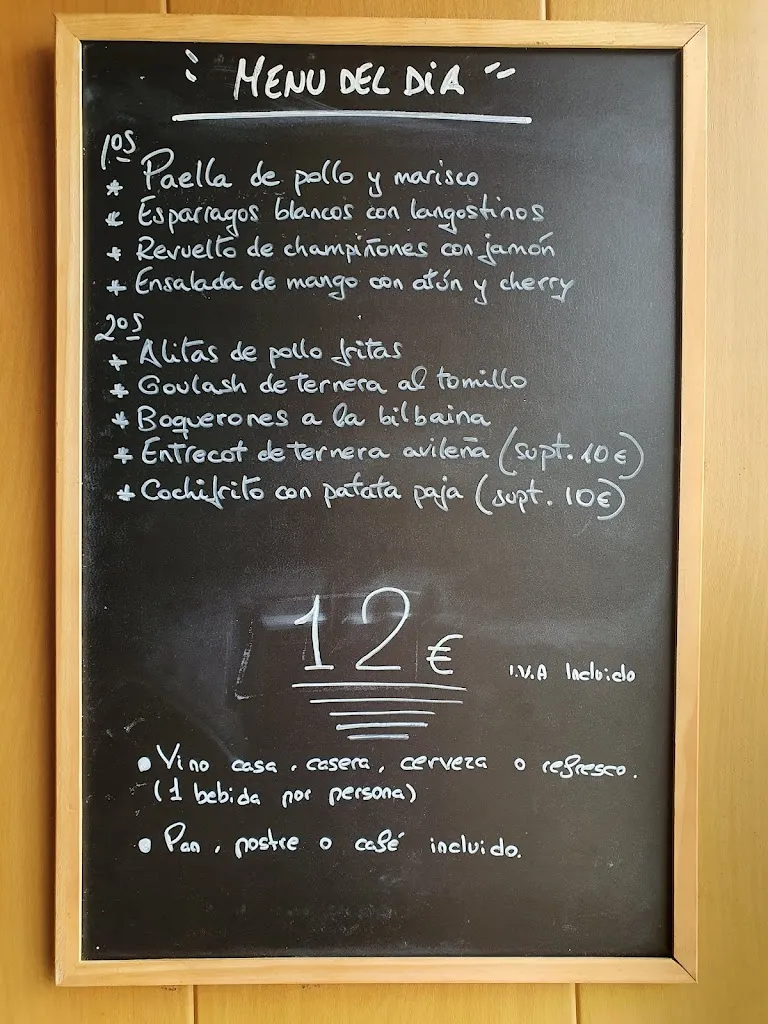 MENU DEL DIA
1os
* Paella de pollo y marisco
* Esparragos blancos con langostinos
* Revuelto de champiñones con jamón
* Ensalada de mango con atún y cherry
2os
* Alitas de pollo fritas
* Goulash de ternera al tomillo
* Boquerones a la bilbaina
* Entrecot de ternera avileña (supt. 10€)
* Cochifrito con patata paja (supt. 10€)
12€
I.V.A Incluido
• Vino casa, casera, cerveza o refresco.
(1 bebida por persona)
• Pan, postre o café incluido.